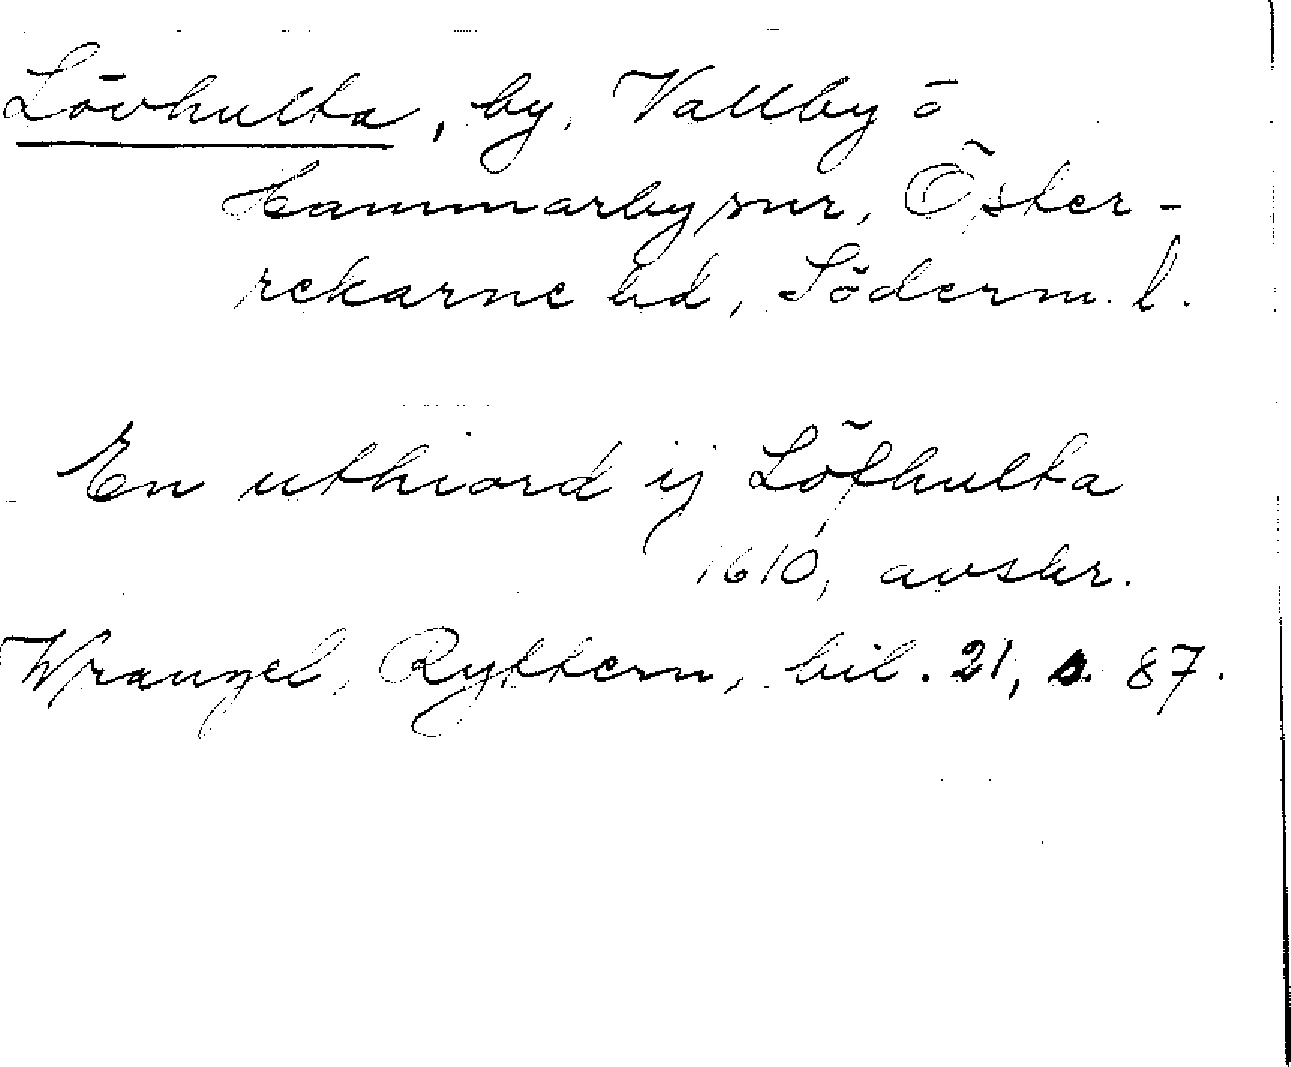 Lövhulta, by, Vallby o
Hammarby snr, Öster-
rekarne hd, Söderm. l.
En uthiord ij Löfhulta
1610, avskr.
Wrangel, Ryttern, bil. 21, s. 87.